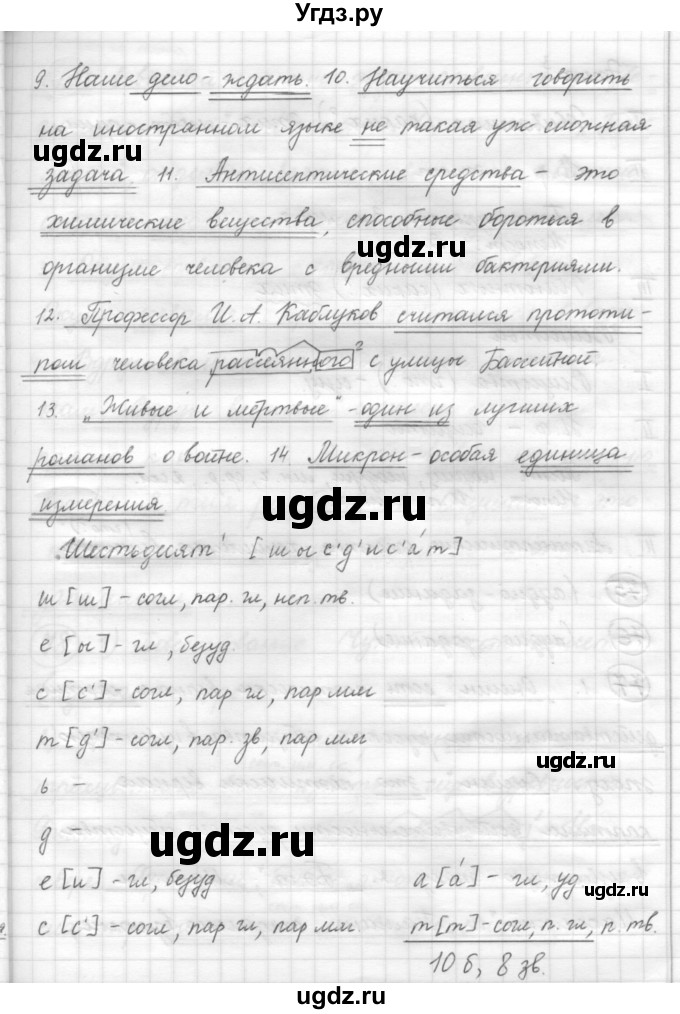 Угдз.ру
9. Наше дело - ждать. 10. Научиться говорить
на иностранном языке не такая уж сложная
ugdz.ru
задача 11. Антисептические средства - это
химические вещества, способные бороться в
ugdz.ru
организме человека с вредными бактериями.
12. Профессор И. А. Каблуков считался прототи-
пом человека рассеянного² с улицы Бассейной.
ugdz.ru
13. „Живые и мёртвые" - один из лучших
романов о войне. 14 Микрон - особая единица
измерения
ugdz.ru
Шестьдесят [ш ы с' д' и с' а́ т]
ш [ш] - согл, пар. гл, неп. тв.
е [ы] - гл, безуд.
ugdz.ru
с [с'] - согл, пар гл, пар мм
т [д'] - согл, пар. зв, пар мм
ugdz.ru
ь -
д -
ugdz.ru
е [и] - гл, безуд а [а́] - гл, уд
ugdz.ru
с [с'] - согл, пар гл, пар мм. т [т] - согл, п. гл, п. тв.
10 б, 8 зв.
ugdz.ru